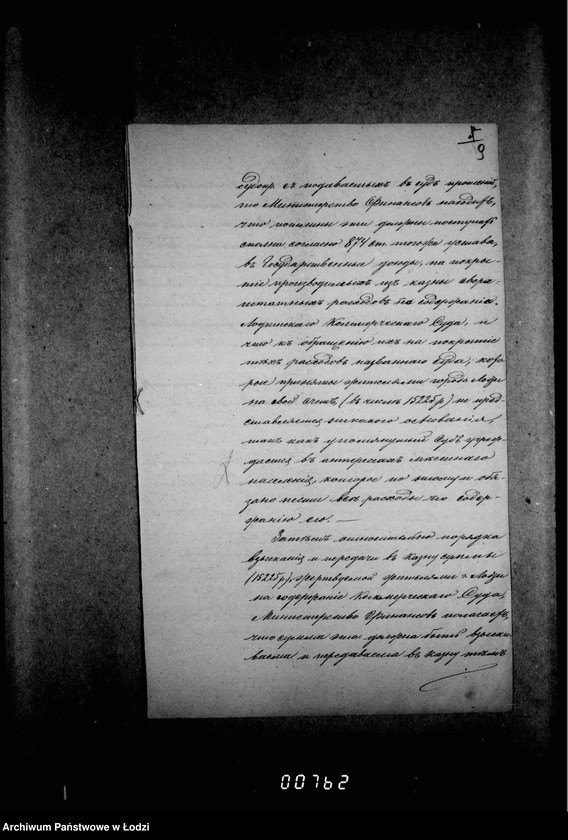 7/9
съ подаваемыхъ въ судъ прошеній,
то Министерство Финансовъ находитъ,
что пошлины эти должны поступать
сполна согласно 874 ст. того же устава,
въ Государственные доходы, на покры-
тіе производимыхъ изъ казны сверх-
штатныхъ расходовъ по содержанію
Лодзинскаго Коммерческаго Суда, и
что къ обращенію ихъ на покрытіе
тѣхъ расходовъ названнаго суда, кото-
рые приняты жителями города Лодзи
на свой счетъ (въ числѣ 15225 р) не пред-
ставляется никакого основанія,
такъ какъ упомянутый Судъ учреж-
дается въ интересахъ мѣстнаго
населенія, которое по этому и обя-
зано нести всѣ расходы по содер-
жанію его. —
Затѣмъ относительно порядка
взысканія и передачи въ казну суммы
(15225 р), жертвуемой жителями г. Лодзи
на содержаніе Коммерческаго Суда,
Министерство Финансовъ полагаетъ,
что сумма эта должна быть взыски-
ваема и передаваема въ казну тѣмъ
00762
Archiwum Państwowe w Łodzi